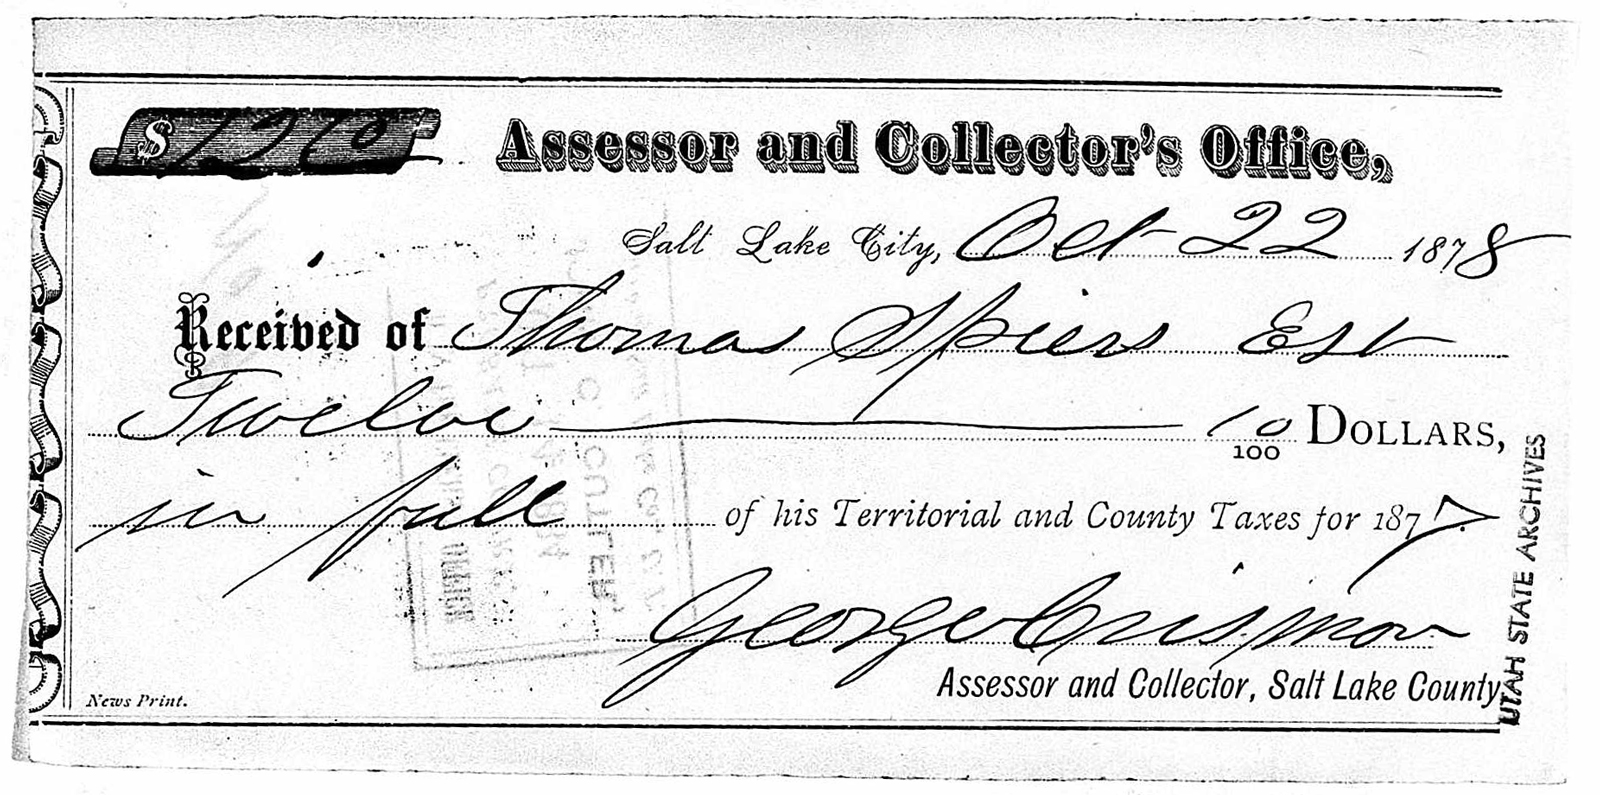 $ 12 10 Assessor and Collector's Office,
Salt Lake City, Oct 22 1878
Received of Thomas Spiers Est
Twelve 10/100 DOLLARS,
in full of his Territorial and County Taxes for 1877.
George Crismon
Assessor and Collector, Salt Lake County
News Print.
UTAH STATE ARCHIVES